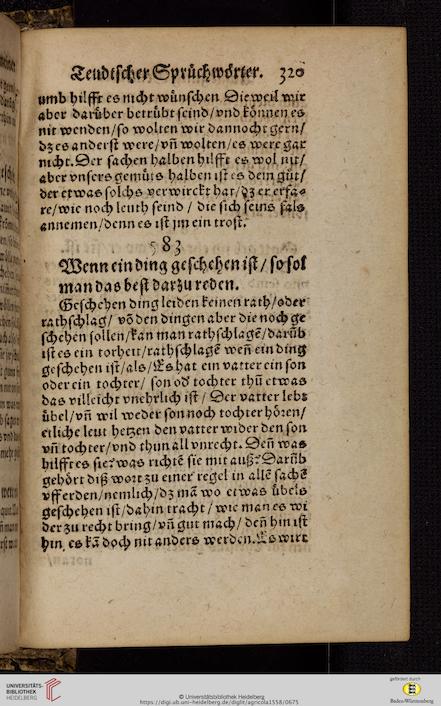 Teudtscher Sprüchwörter. 320
umb hilfft es nicht wünschen Dieweil wir
aber darüber betrübt seind/vnd können es
nit wenden/so wolten wir dannocht gern/
dz es anderst were/vñ wolten/es were gar
nicht. Der sachen halben hilfft es wol nit/
aber vnsers gemüts halben ist es dem güt/
der etwas solchs verwirckt hat/dz er erfa-
re/wie noch leuth seind / die sich seins fals
annemen/denn es ist jm ein trost.
583
Wenn ein ding geschehen ist / so sol
man das best darzu reden.
Geschehen ding leiden keinen rath/oder
rathschlag/ võ den dingen aber die noch ge
schehen sollen/kan man rathschlagẽ/darüb
ist es ein torheit/rathschlagẽ weñ ein ding
geschehen ist/als/Es hat ein vatter ein son
oder ein tochter/ son od tochter thü etwas
das villeicht vnehrlich ist / Der vatter lebt
übel/vñ wil weder son noch tochter hören/
etliche leut hetzen den vatter wider den son
vñ tochter/vnd thun all vnrecht. Deñ was
hilfft es sie? was richtẽ sie mit auß? Darüb
gehört diß wort zu einer regel in allẽ sachẽ
vfferden/nemlich/dz mã wo etwas übels
geschehen ist/dahin tracht / wie man es wi
der zu recht bring/vñ gut mach/ deñ hin ist
hin, es kã doch nit anders werden. Es wirt
UNIVERSITÄTS-
BIBLIOTHEK
HEIDELBERG
© Universitätsbibliothek Heidelberg
https://digi.ub.uni-heidelberg.de/diglit/agricola1558/0675
gefördert durch
Baden-Württemberg